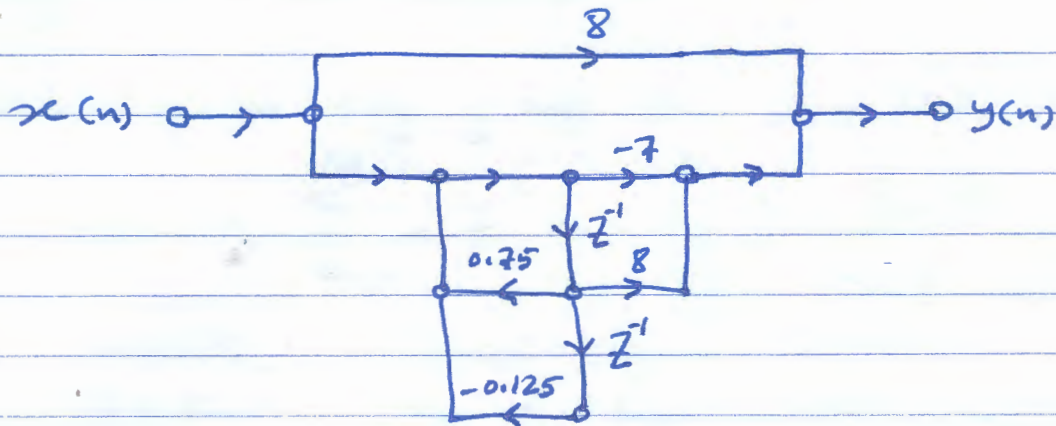 8
x(n) y(n)
-7
z⁻¹
0.75 8
z⁻¹
-0.125